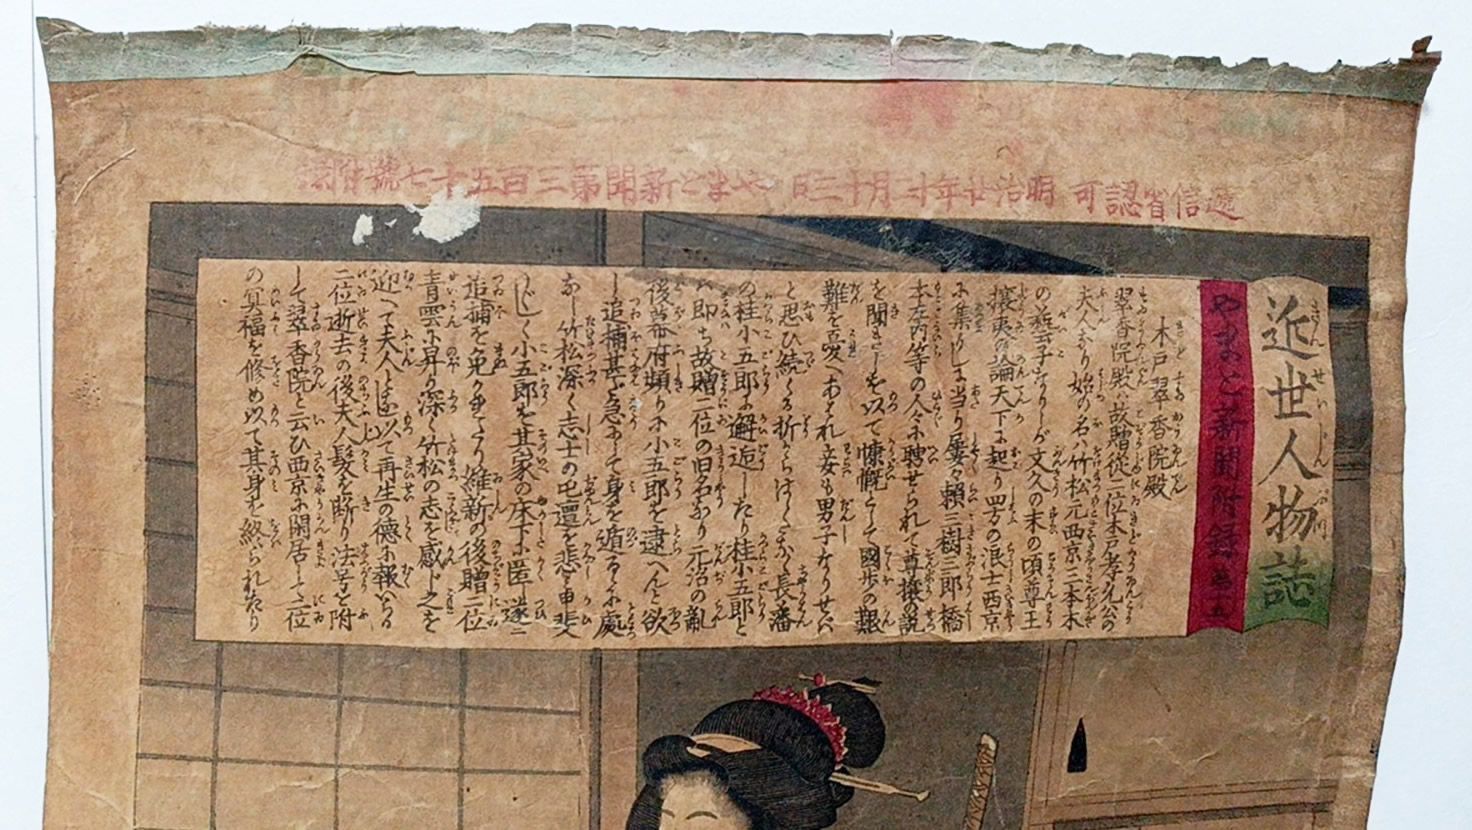 逓信省認可 明治廿年十二月十三日 やまと新聞第三百五十七號附録
近世人物誌
やまと新聞附録 第十五
木戸翠香院殿
翠香院殿ハ故贈従二位木戸孝允公の
夫人なり始の名ハ竹松元西京三本木
の藝子なりしが文久の末の頃尊王
攘夷の論天下に起り四方の浪士西京
に集りしに当り屡々頼三樹三郎橋
本左内等の人々に聘せられて尊攘の説
を聞きしを以て慷慨として國歩の艱
難を憂へあはれ妾も男子なりせバ
と思ひ続くる折からはしなくも長藩
の桂小五郎に邂逅したり桂小五郎と
ハ即ち故贈二位の旧名なり元治の乱
後幕府頻りに小五郎を逮へんと欲
し追捕甚だ急にして身を遁るゝに處
なし竹松深く志士の屯邅を悲み申斐
〲しく小五郎を其家の床下に匿し遂ニ
追捕を免かれしめたり維新の後贈二位
青雲に昇り深く竹松の志を感じ之を
迎へて夫人とし以て再生の徳に報いらる
二位逝去の後夫人髪を断り法号を附
して翠香院と云ひ西京に閑居して二位
の冥福を修め以て其身を終られたり